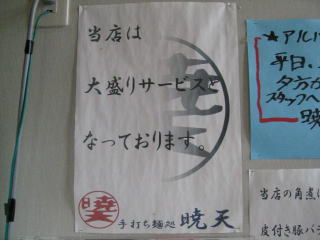 当店は
大盛りサービスと
なっております。
手打ち麺処 暁天
★アル
平日、
夕方か
スタッフへ
暁
当店の角煮は
皮付き豚バ